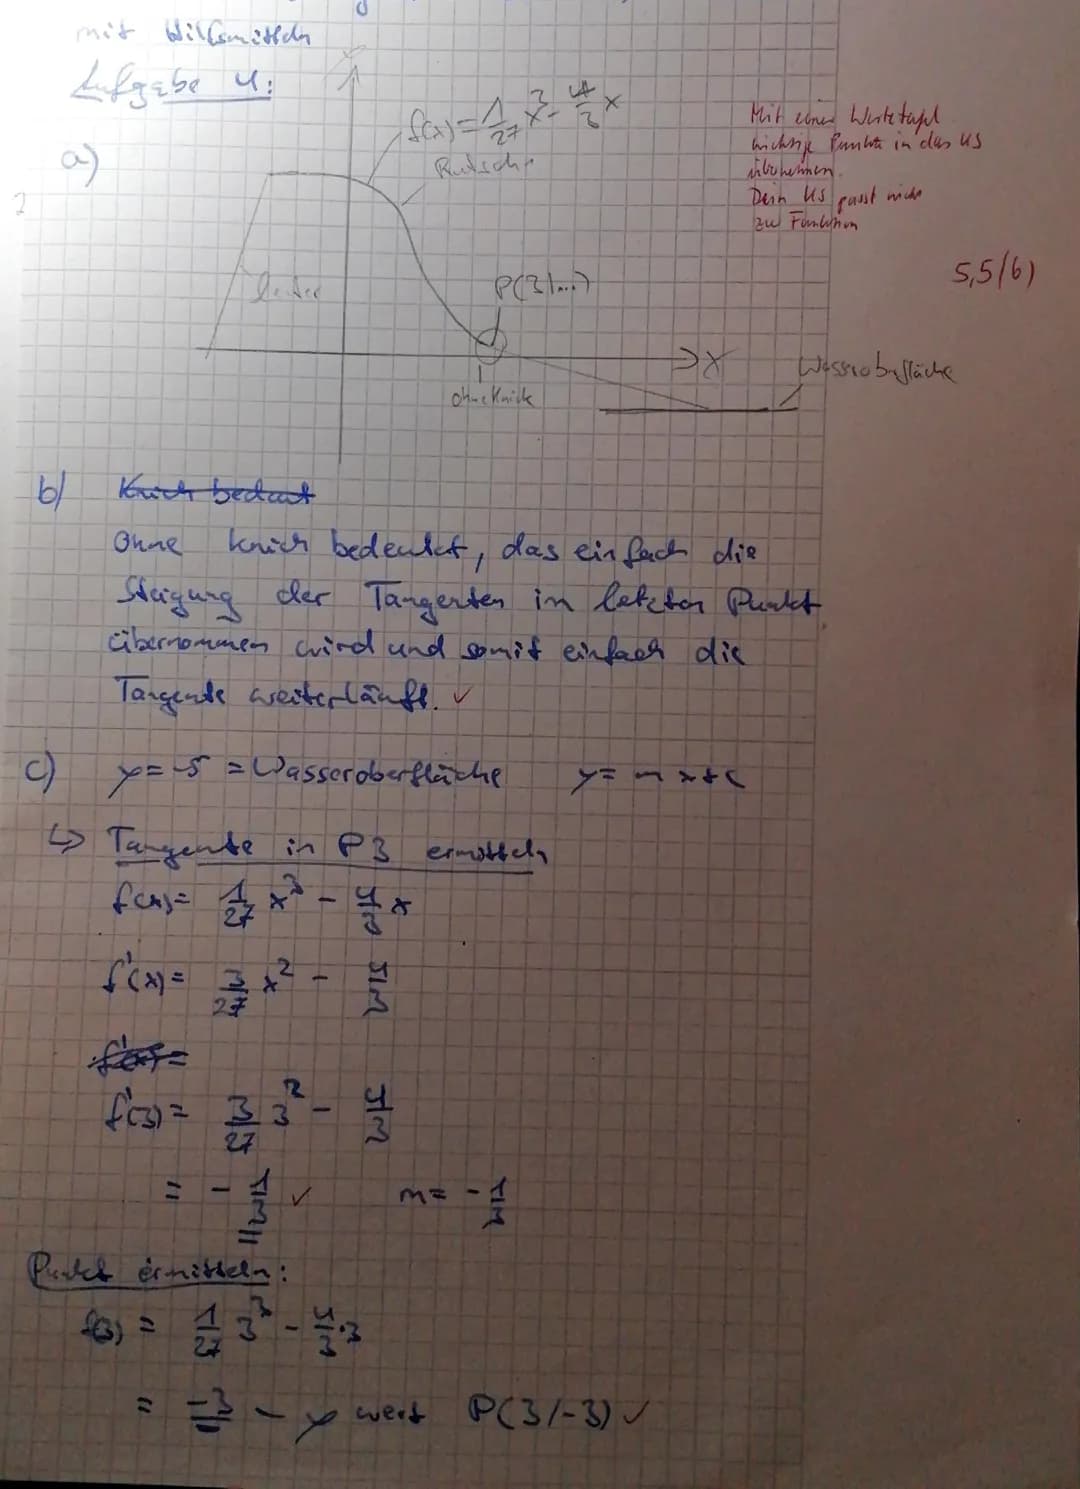 mit Hilfsmitteln
Aufgabe 4:
a)
f(x) = 1/27 x³ - 4/3 x
Rutsche
Mit einer Wertetafel
wichtige Punkte in das KS
übernehmen.
Dein KS passt nicht
zu Funktion
5,5/6)
Leiter
P(3|...)
x
Wasseroberfläche
ohne Knick
b)
Ohne Knick bedeutet, das einfach die
Steigung der Tangenten in letzten Punkt
übernommen wird und somit einfach die
Tangente weiterläuft. ✓
c) y = -5 = Wasseroberfläche y = mx+c
↳ Tangente in P3 ermitteln
f(x) = 1/27 x³ - 4/3 x
f'(x) = 3/27 x² - 4/3
f'(x) =
f'(3) = 3/27 3² - 4/3
= - 1/3 ✓ m = - 1/3
Punkt ermitteln:
f(3) = 1/27 3³ - 4/3 · 3
= -3 - y wert P(3/-3) ✓